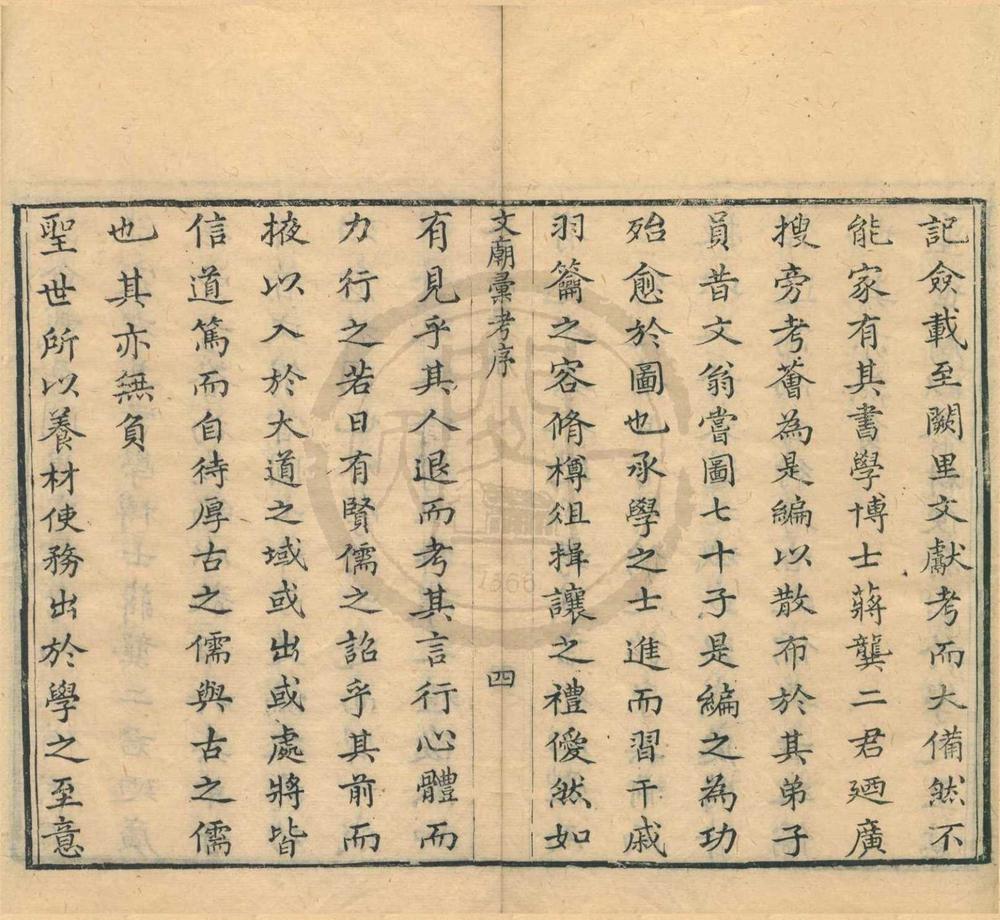 記僉載至闕里文獻考而大備然不
能家有其書學博士蔣龔二君廼廣
搜旁考薈為是編以散布於其弟子
員昔文翁嘗圖七十子是編之為功
殆愈於圖也承學之士進而習干戚
羽籥之容脩樽俎揖讓之禮僾然如
文廟彚考序
四
有見乎其人退而考其言行心體而
力行之若日有賢儒之詔乎其前而
掖以入於大道之域或出或處將皆
信道篤而自待厚古之儒與古之儒
也其亦無負
聖世所以養材使務出於學之至意
1366